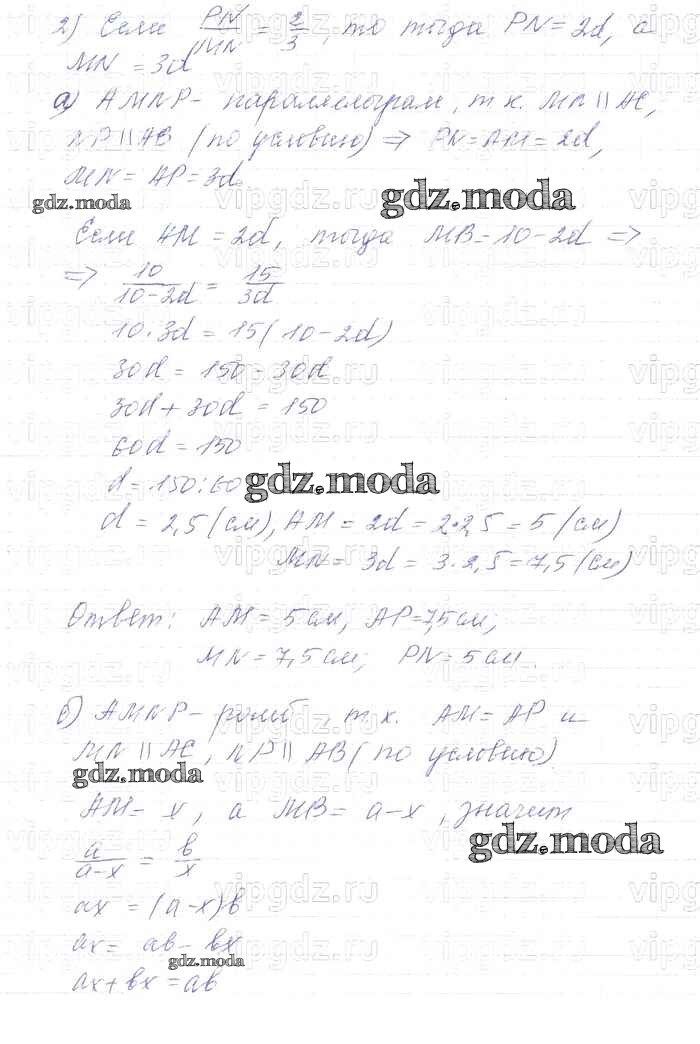 2) Если PN/MN = 2/3, то тогда PN = 2d, а
MN = 3d
а) AMNP - параллелограм, т.к. MN || AC,
NP || AB (по условию) ⇒ PN = AM = 2d,
MN = AP = 3d
gdz.moda
gdz.moda
Если AM = 2d, тогда MB = 10 - 2d ⇒
⇒ 10/(10-2d) = 15/3d
10·3d = 15(10-2d)
30d = 150 - 30d
30d + 30d = 150
60d = 150
d = 150:60
gdz.moda
d = 2,5 (см), AM = 2d = 2·2,5 = 5 (см)
MN = 3d = 3·2,5 = 7,5 (см)
Ответ: AM = 5 см, AP = 7,5 см;
MN = 7,5 см; PN = 5 см.
б) AMNP - ромб, т.к. AM = AP и
MN || AC, NP || AB (по условию)
gdz.moda
AM = x, а MB = a-x, значит
gdz.moda
a/(a-x) = b/x
ax = (a-x)b
ax = ab - bx
gdz.moda
ax + bx = ab
vipgdz.ru